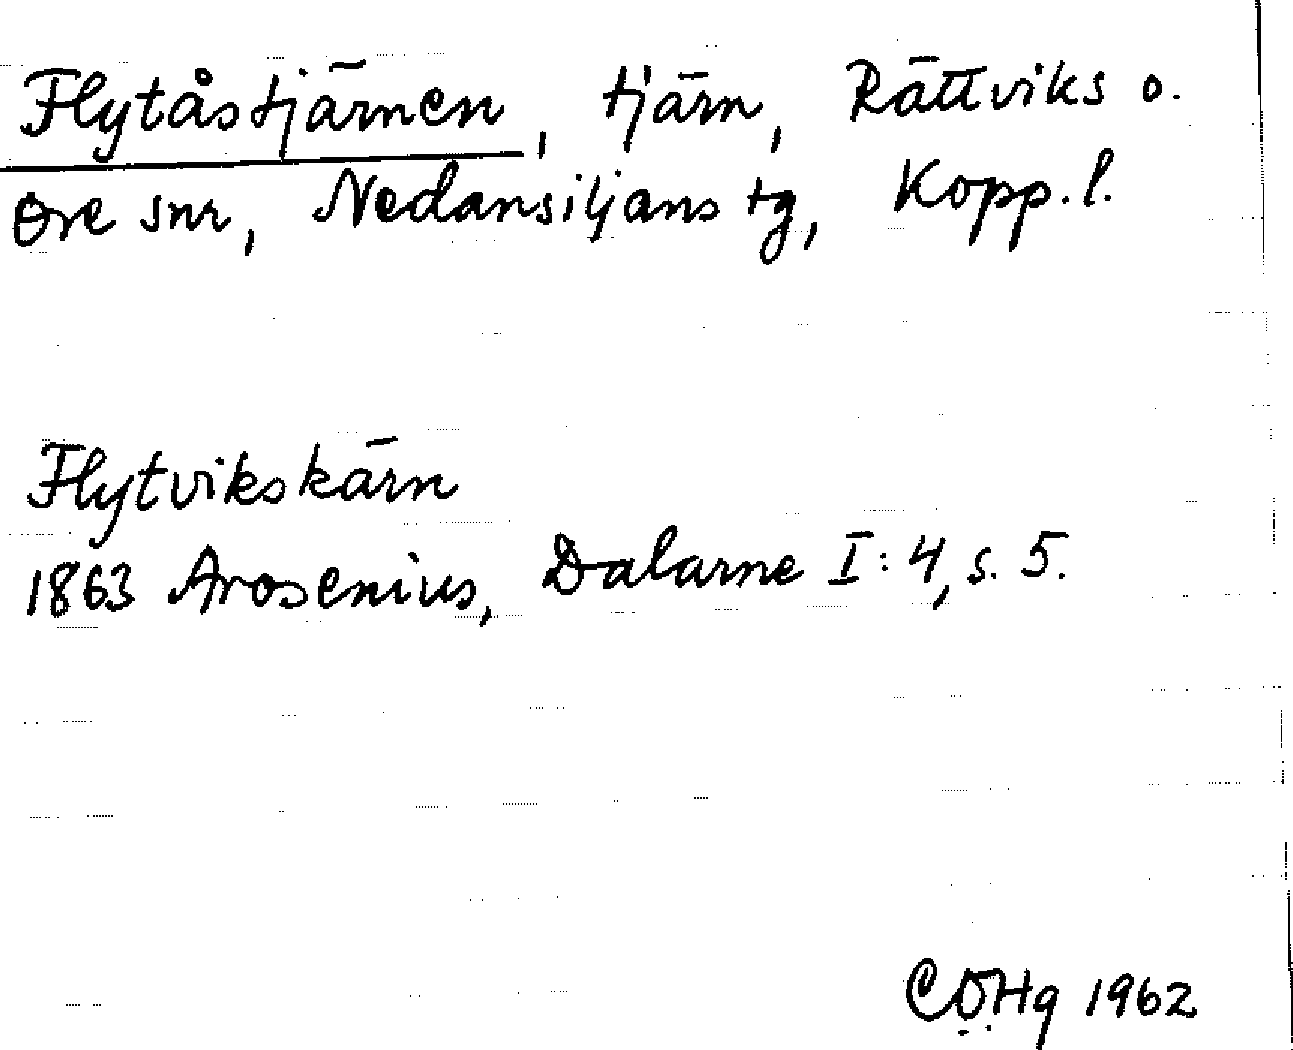 Flytåstjärnen, tjärn, Rättviks o.
Ore snr, Nedansiljans tg, Kopp. l.
Flytvikskärn
1863 Arosenius, Dalarne I: 4, s. 5.
CÖHg 1962